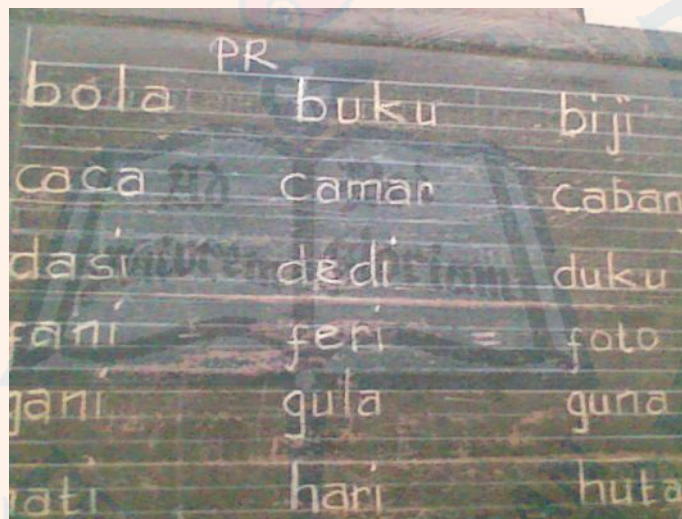 PR
bola buku biji
caca camar caban
dasi dedi duku
fani = feri = foto
gani gula guna
hati hari huta
Ad Dei
maiorem gloriam